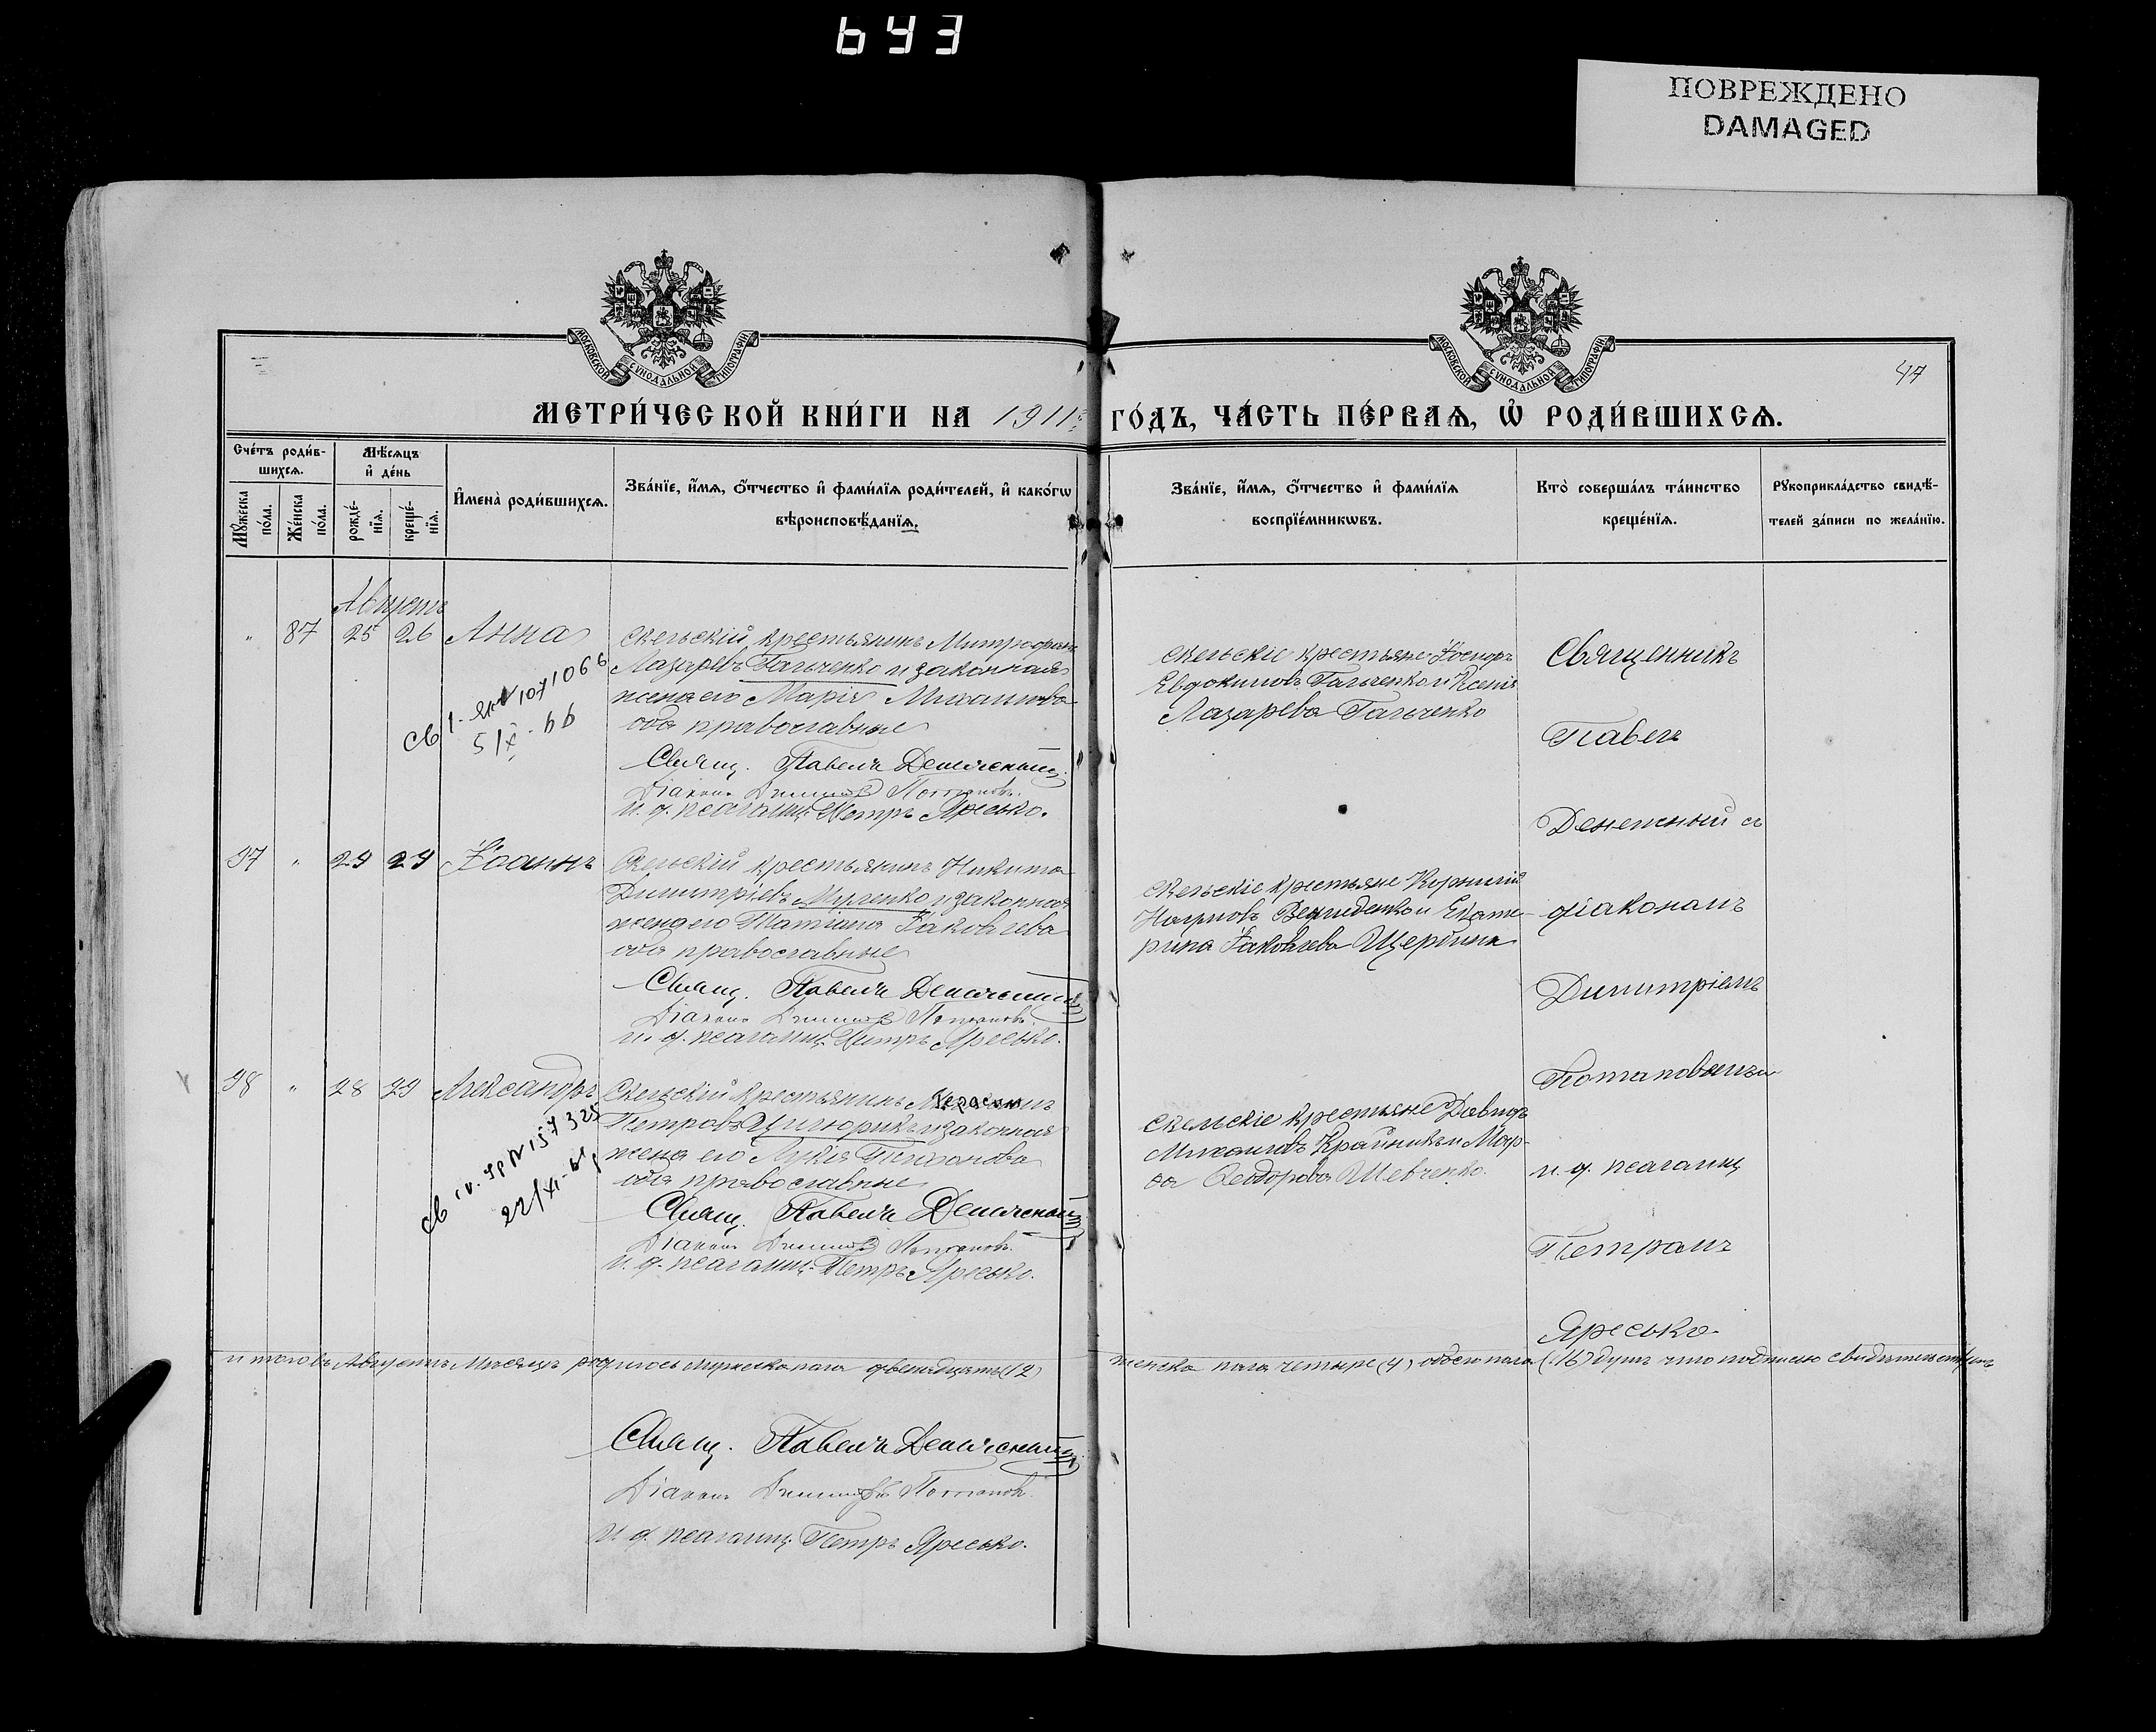 643
ПОВРЕЖДЕНО
DAMAGED
МОСКОВСКОЙ СѴНОДАЛЬНОЙ ТИПОГРАФІИ
МОСКОВСКОЙ СѴНОДАЛЬНОЙ ТИПОГРАФІИ
47
МЕТРИ́ЧЕСКОЙ КНИ́ГИ НА 1911 ГО́ДЪ, ЧА́СТЬ ПЕ́РВАѦ, Ѡ҆ РОДИ́ВШИХСѦ.
Сче́тъ роди́в-
шихсѧ.
Мѣ́сѧцъ
и҆ де́нь
Мꙋ́жеска по́ла.
Же́нска по́ла.
рожде́-нїѧ.
креще́-нїѧ.
И҆мена̀ роди́вшихсѧ.
Зва́нїе, и҆́мѧ, ѻ҆́тчество и҆ фами́лїѧ роди́телей, и҆ како́гѡ
вѣроисповѣ́данїѧ.
Зва́нїе, и҆́мѧ, ѻ҆́тчество и҆ фами́лїѧ
воспрїе́мникѡвъ.
Кто̀ соверша́лъ та́инство
креще́нїѧ.
Рꙋкоприкла́дство свидѣ́-
телей за́писи по жела́нїю.
Августъ
" 87 25 26 Анна
Скельскій крестьянинъ Митрофанъ
Лазаревъ Гальченко и законная
жена его Марія Михаилова
оба православные
Свящ. Павелъ Денежный
Діаконъ Димитрій Потаповъ.
и. д. псаломщ. Петръ Яресько.
5/X - 66
Скельскіе крестьяне
Евдокимовъ Гальченко и Ксенія
Лазарева Гальченко
Священникъ
Павелъ
Денежный съ
діакономъ
Димитріемъ
Потаповымъ и
и. д. псаломщ
Петромъ
Яресько.
97 " 29 29 Іоаннъ
Скельскій крестьянинъ Никита
Димитріевъ и законная
жена его Татіана Іаковлева
оба православные
Свящ. Павелъ Денежный
Діаконъ Димитрій Потаповъ.
и. д. псаломщ. Петръ Яресько.
Скельскіе крестьяне Корнилій
Наумовъ и Екате-
рина Іаковлева Щербина
98 " 28 29 Александръ
Скельскій крестьянинъ Герасимъ
Петровъ и законная
жена его Лукія
оба православные
Свящ. Павелъ Денежный
Діаконъ Димитрій Потаповъ.
и. д. псаломщ. Петръ Яресько.
Скельскіе крестьяне Давидъ
Михаиловъ Крайникъ и Мар-
ѳа Ѳеодорова Шевченко.
Итого въ Августѣ Мѣсяцѣ родилось Мужеска пола двенадцать (12)
женска пола четыре (4) обоего пола (16) душъ что подписью свидѣтельствуемъ
Свящ. Павелъ Денежный
Діаконъ Димитрій Потаповъ.
и. д. псаломщ. Петръ Яресько.